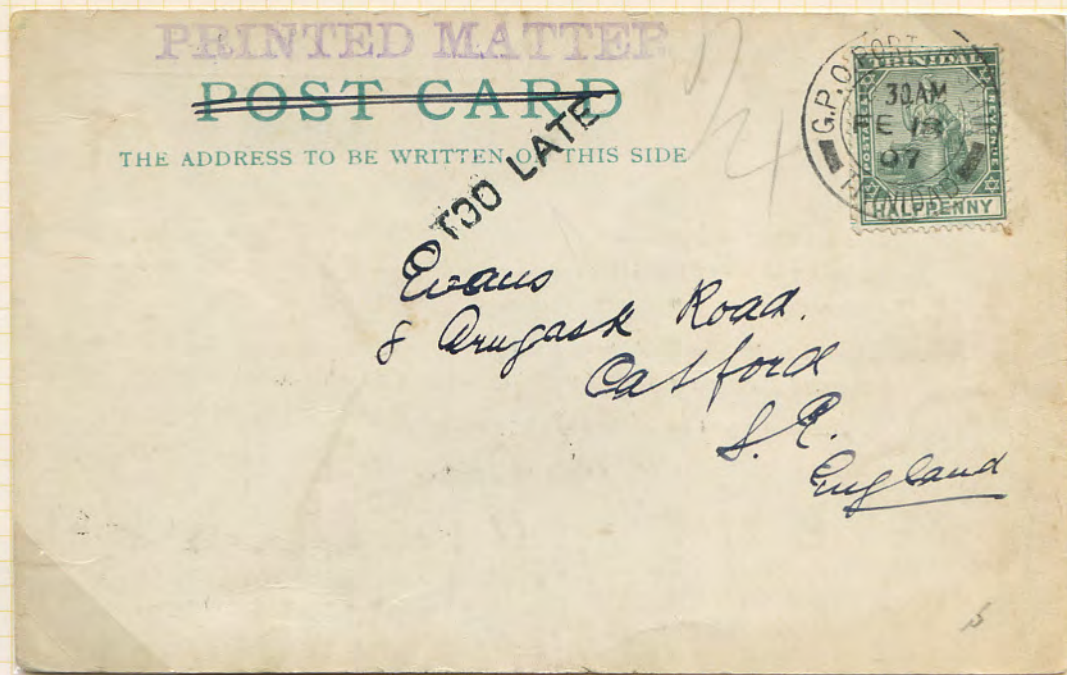 PRINTED MATTER
POST CARD
THE ADDRESS TO BE WRITTEN ON THIS SIDE
TOO LATE
G.P.O. PORT
TRINIDAD
30 AM
FE 18
07
TRINIDAD
POSTAGE & REVENUE
HALFPENNY
Evans
8 Arngask Road.
Catford
S.E.
England